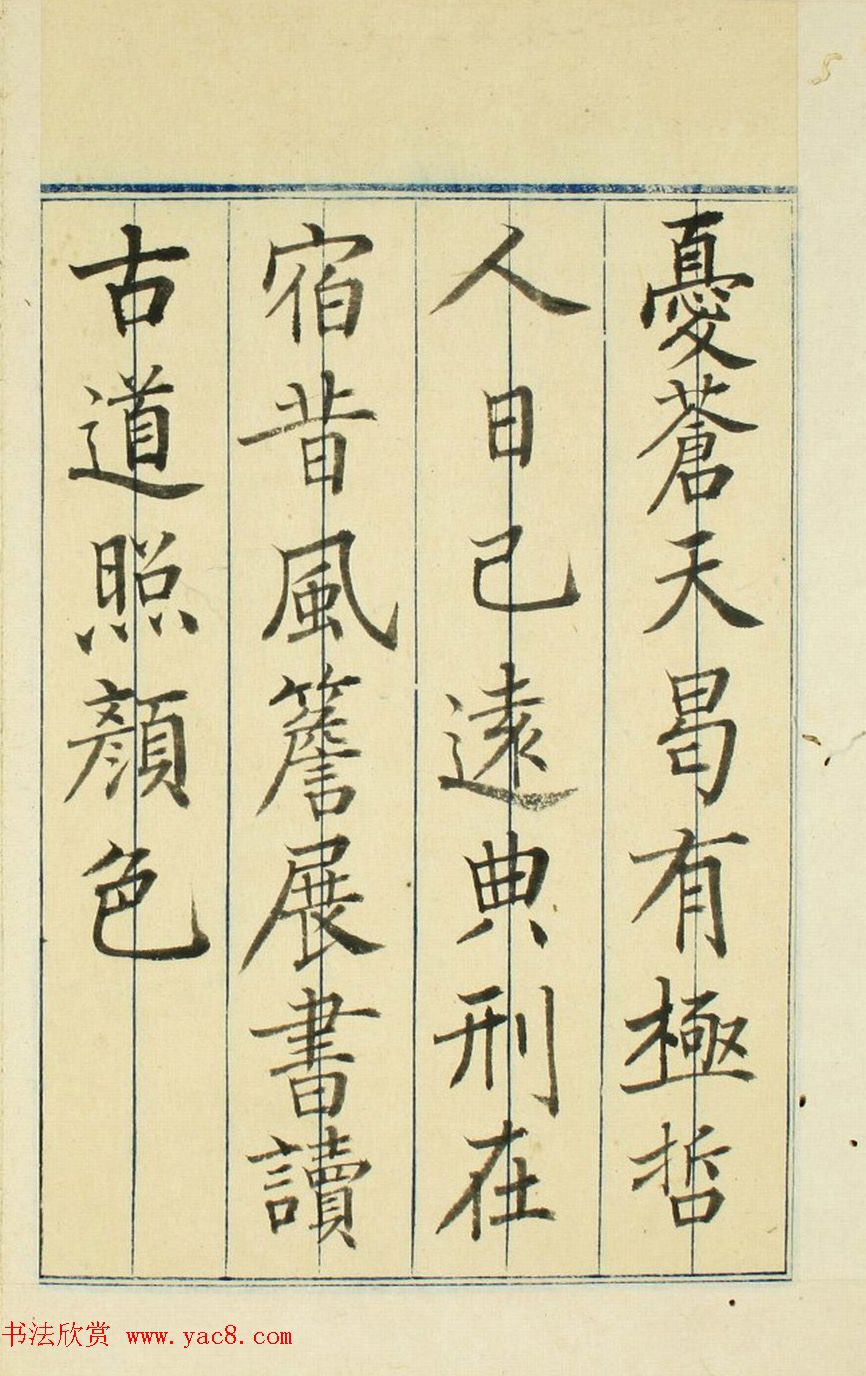 憂蒼天曷有極哲
人日已遠典刑在
宿昔風簷展書讀
古道照顏色
书法欣赏 www.yac8.com